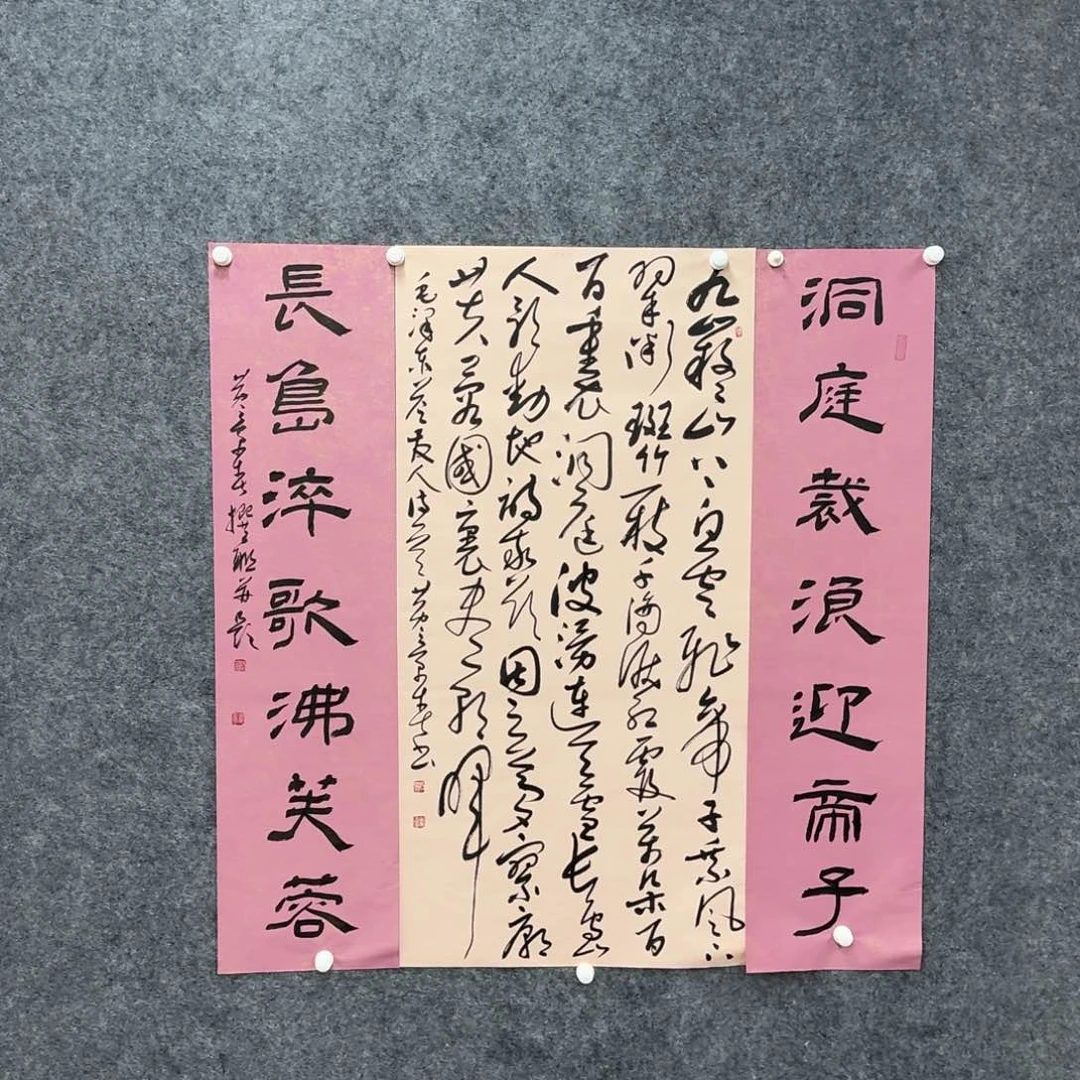 洞庭裁浪迎帝子
九嶷山上白雲飛帝子乘風下
翠微斑竹一枝千滴淚紅霞萬朵百
百重衣洞庭波湧連天雪長島
人歌動地詩我欲因之夢寥廓
芙蓉國裏盡朝暉
毛澤东答友人诗 書
長島淬歌沸芙蓉
撰聯并題